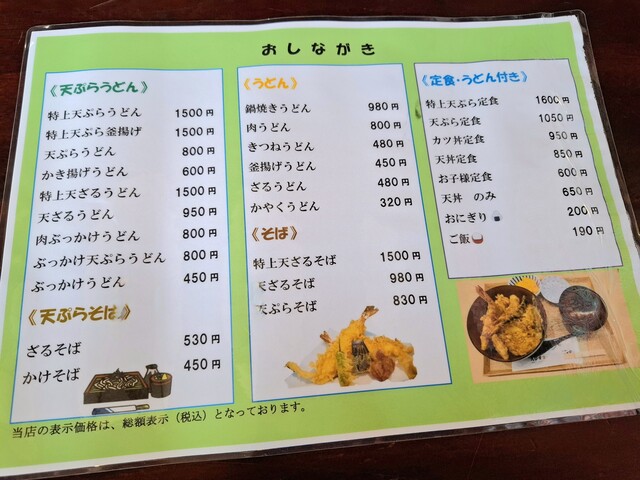 おしながき
《天ぷらうどん》
特上天ぷらうどん 1500円
特上天ぷら釜揚げ 1500円
天ぷらうどん 800円
かき揚げうどん 600円
特上天ざるうどん 1500円
天ざるうどん 950円
肉ぶっかけうどん 800円
ぶっかけ天ぷらうどん 800円
ぶっかけうどん 450円
《天ぷらそば》
ざるそば 530円
かけそば 450円
《うどん》
鍋焼きうどん 980円
肉うどん 800円
きつねうどん 480円
釜揚げうどん 450円
ざるうどん 480円
かやくうどん 320円
《そば》
特上天ざるそば 1500円
天ざるそば 980円
天ぷらそば 830円
《定食・うどん付き》
特上天ぷら定食 1600円
天ぷら定食 1050円
カツ丼定食 950円
天丼定食 850円
お子様定食 600円
天丼 のみ 650円
おにぎり 200円
ご飯 190円
当店の表示価格は、総額表示（税込）となっております。